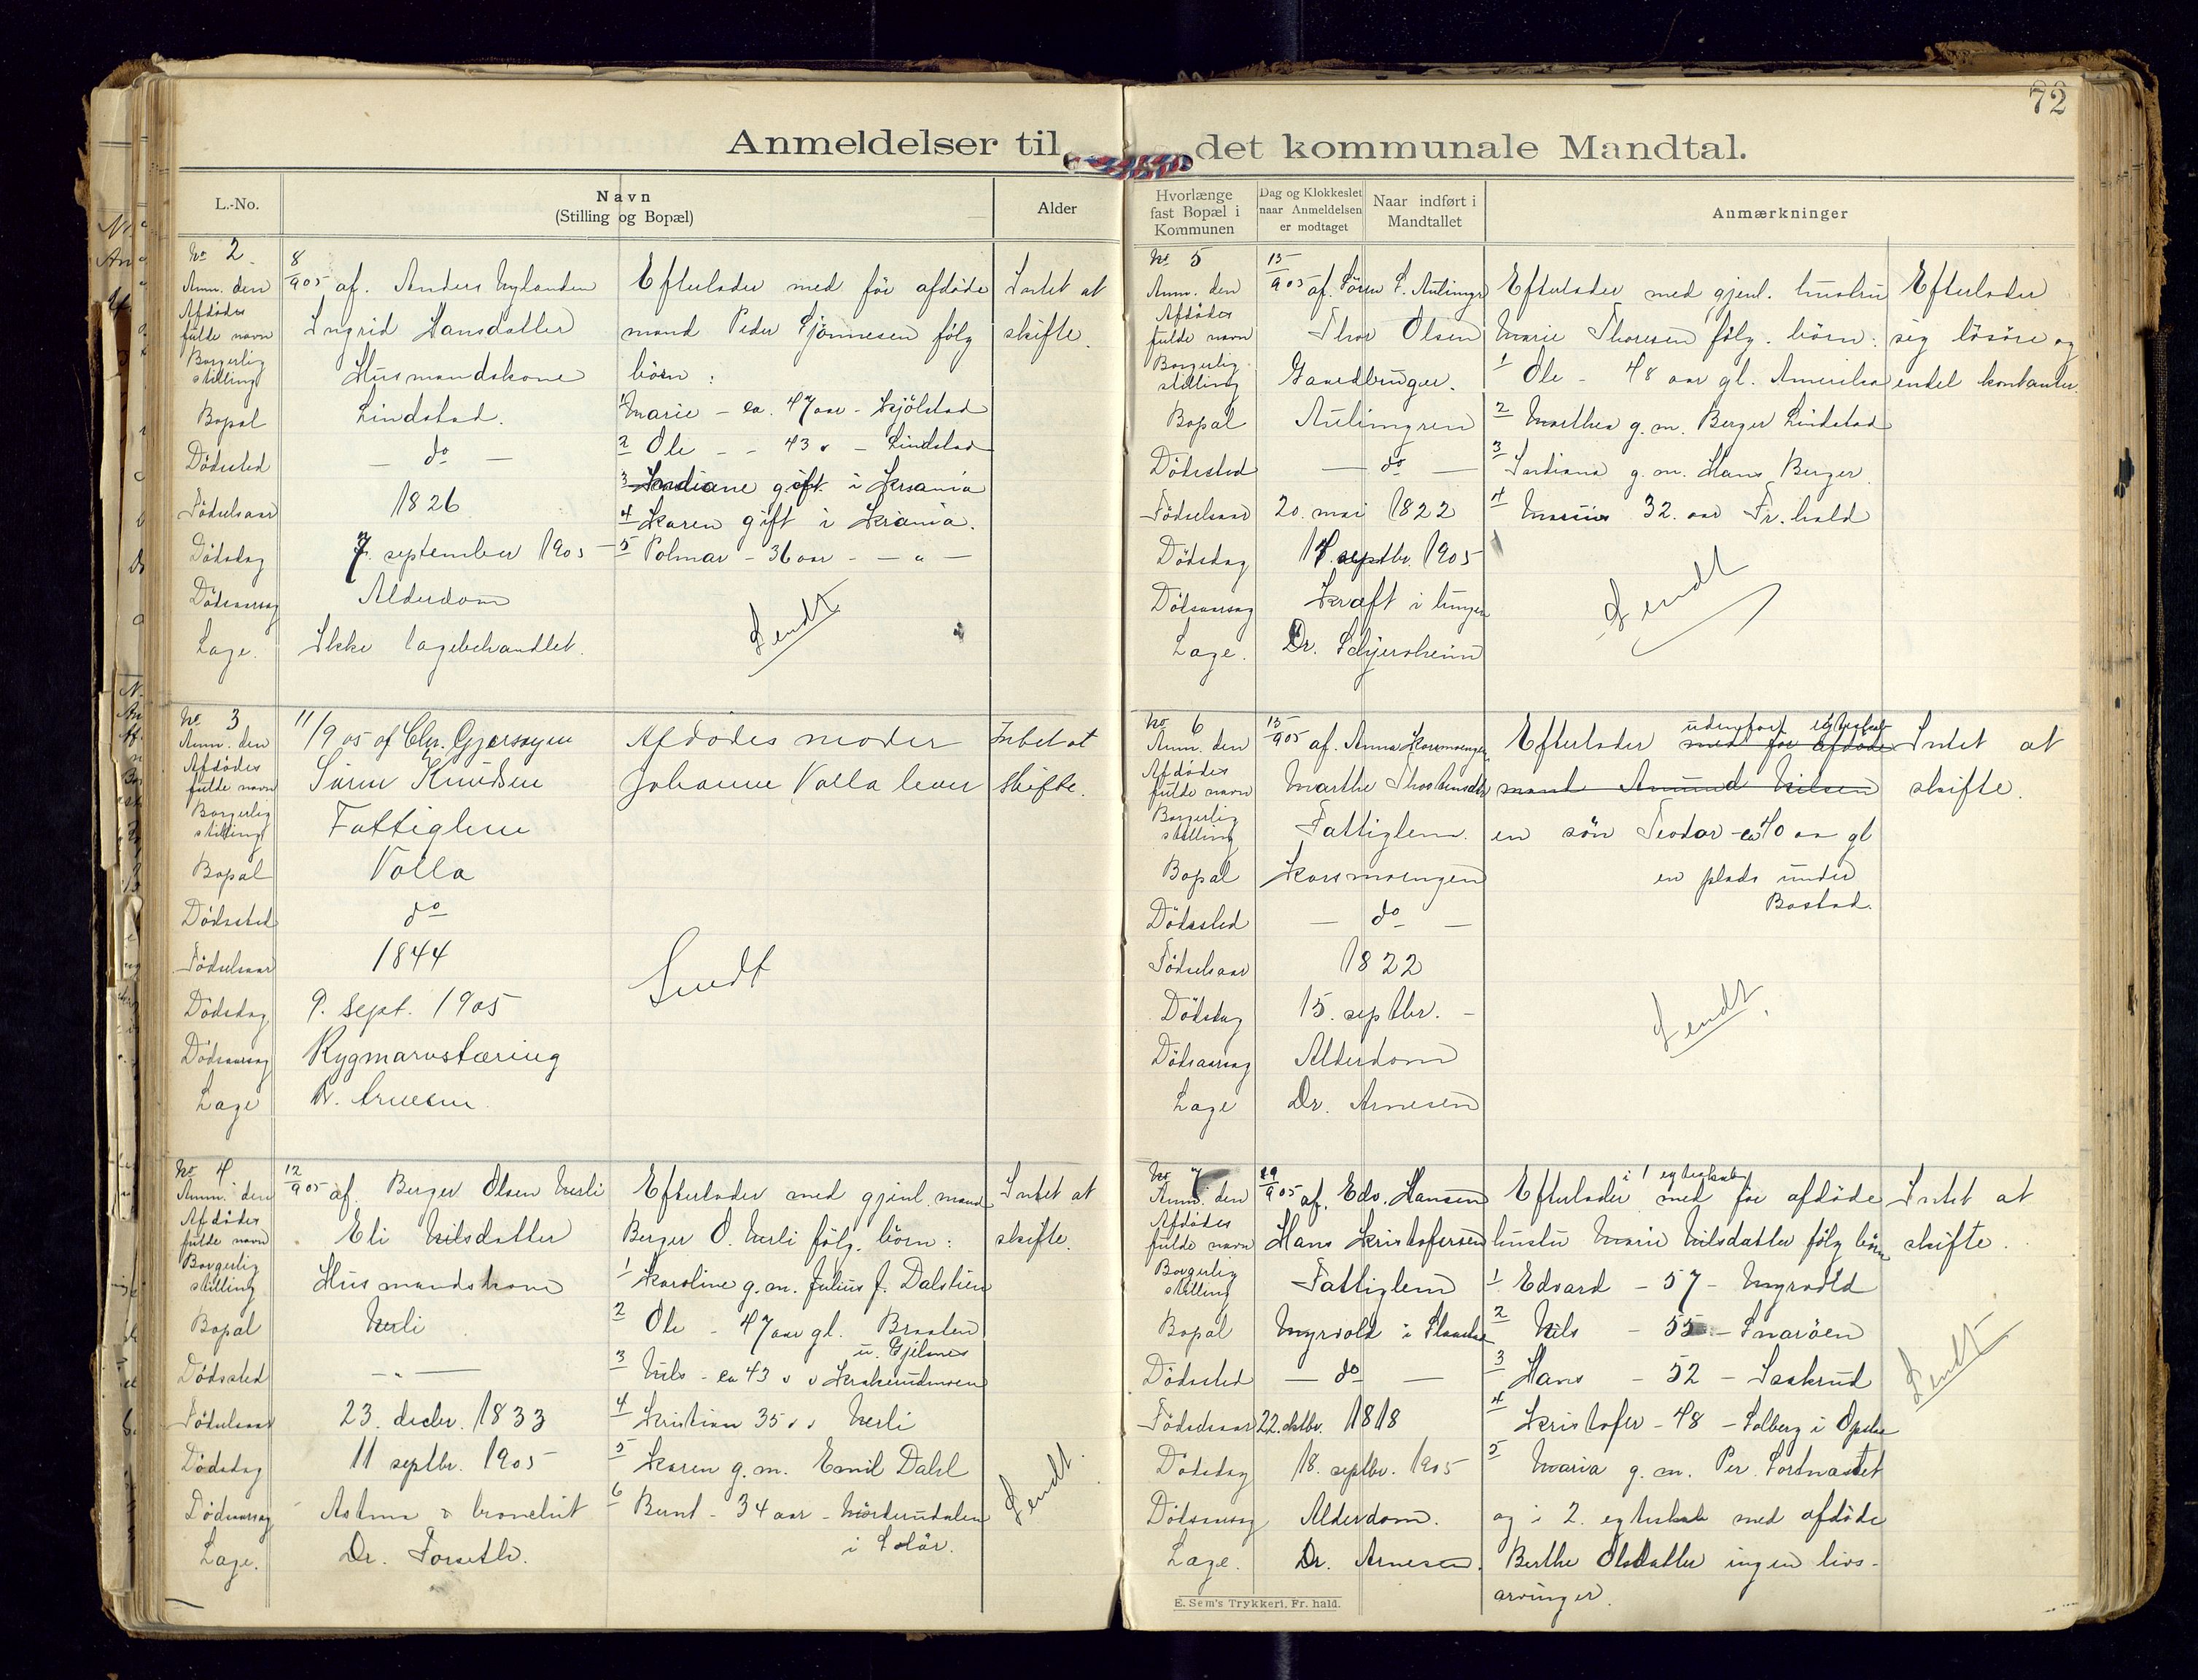 72
Anmeldelser til det kommunale Mandtal.
L.-No.
Navn
(Stilling og Bopæl)
Alder
Hvorlænge fast Bopæl i Kommunen
Dag og Klokkeslet naar Anmeldelsen er modtaget
Naar indført i Mandtallet
Anmærkninger
No 2.
Anm. den 8/9 05 af. Anders Nylænden
Afdödes fulde navn Ingrid Hansdatter
Borgerlig stilling Husmandskone
Bopæl Lindstad.
Dödssted — do —
Födselsaar 1826
Dödsdag 7. september 1905
Dödsaarsag Alderdom
Læge. Ikke lægebehandlet.
Efterlader med för afdöde
mand Peder Gjönnesen følg
börn:
1 Marie - ca. 47 aar - Kjölstad
2 Ole - - 43 " - Lindstad
3 gift i Krania
4 Karen gift i Krania.
5 Polmar - 36 aar - — " —
Sendt
Intet at
skifte.
No 3
Anm. den 11/9 05 af Chr.
Afdödes fulde navn Sören Knudsen
Borgerlig stilling Fattiglem
Bopæl Volla
Dödssted do
Födselsaar 1844
Dödsdag 9. sept. 1905
Dödsaarsag Rygmarvstæring
Læge Dr. Arnesen
Afdödes moder
Johanne Volla lever
Sendt
Intet at
skifte.
No 4
Anm. den 12/9 05 af. Berger Olsen Nerli
Afdödes fulde navn Eli Nilsdatter
Borgerlig stilling Husmandskone
Bopæl Nerli
Dödssted - " —
Födselsaar 23. decbr. 1833
Dödsdag 11 septbr. 1905
Dödsaarsag Astma & bronchit
Læge. Dr. Forseth.
Efterlader med gjenl. mand
Berger O. Nerli fölg. börn:
1 Karoline g.m. Julius J. Dalstien
2 Ole - 47 aar gl. Braaten
u. Gjelnes
3 Nils - ca 43 " "
4 Kristian 35 " " Nerli
5 Karen g.m. Emil Dahl
6 Bernt - 34 aar -
i Solör.
Intet at
skifte.
Sendt.
No 5
Anm. den 15/9 05 af. Sören S. Aulimgr
Afdödes fulde navn Thor Olsen
Borgerlig stilling Gaardbruger.
Bopæl Aulimgren
Dödssted — do —
Födselsaar 20. mai 1822
Dödsdag 14. septbr. 1905
Dödsaarsag Kræft i lungen
Læge. Dr. Schjersheim
Efterlader med gjenl. hustru
Marie Thoresen fölg. börn:
1 Ole - 48 aar gl. Amerika
2 Marthea g.m. Berger Lindstad
3 g.m. Hans Berger.
4 32. aar Fr.hald
Sendt
Efterlader
sig lösöre og
endel kontanter.
No 6
Anm. den 15/9 05 af. Anna Korsmoengen
Afdödes fulde navn Marthe Thorstensdtr
Borgerlig stilling Fattiglem.
Bopæl Korsmoengen
Dödssted — do —
Födselsaar 1822
Dödsdag 15. septbr. -
Dödsaarsag Alderdom
Læge Dr. Arnesen
udenfor egteskab
Efterlader med för afdöde
mand Amund Nilsen
en sön Teodor - ca 40 aa gl
en plads under
Bastad.
Sendt.
Intet at
skifte.
No 7
Anm. den 19/9 05 af. Edv. Hansen
Afdödes fulde navn Hans Kristofersen
Borgerlig stilling Fattiglem
Bopæl Myrvold i
Dödssted — do —
Födselsaar 22. oktbr. 1818
Dödsdag 18. septbr. 1905
Dödsaarsag Alderdom.
Læge. Dr. Arnesen.
i 1 egteskab
Efterlader med för afdöde
hustru Marie Nilsdatter fölg börn
1 Edvard - 57 - Myrvold
2 Nils - 55 - Snaröen
3 Hans - 52 -
4 Kristofer - 48 - Solberg i
5 Maria g.m. Per.
og i 2. egteskab med afdöde
Berthe Olsdatter ingen livs-
arvinger.
Intet at
skifte.
Sendt
E. Sem's Trykkeri, Fr. hald.